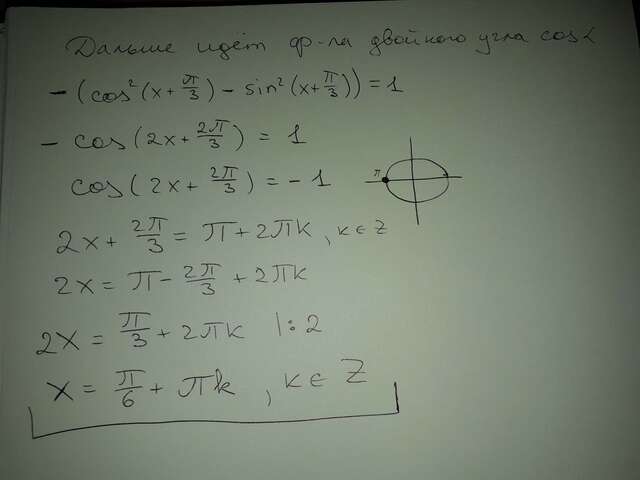 Дальше идёт ф-ла двойного угла cos α
- (cos²(x + π/3) - sin²(x + π/3)) = 1
- cos(2x + 2π/3) = 1
cos(2x + 2π/3) = -1
π
2x + 2π/3 = π + 2πk, k ∈ Z
2x = π - 2π/3 + 2πk
2x = π/3 + 2πk |:2
x = π/6 + πk, k ∈ Z